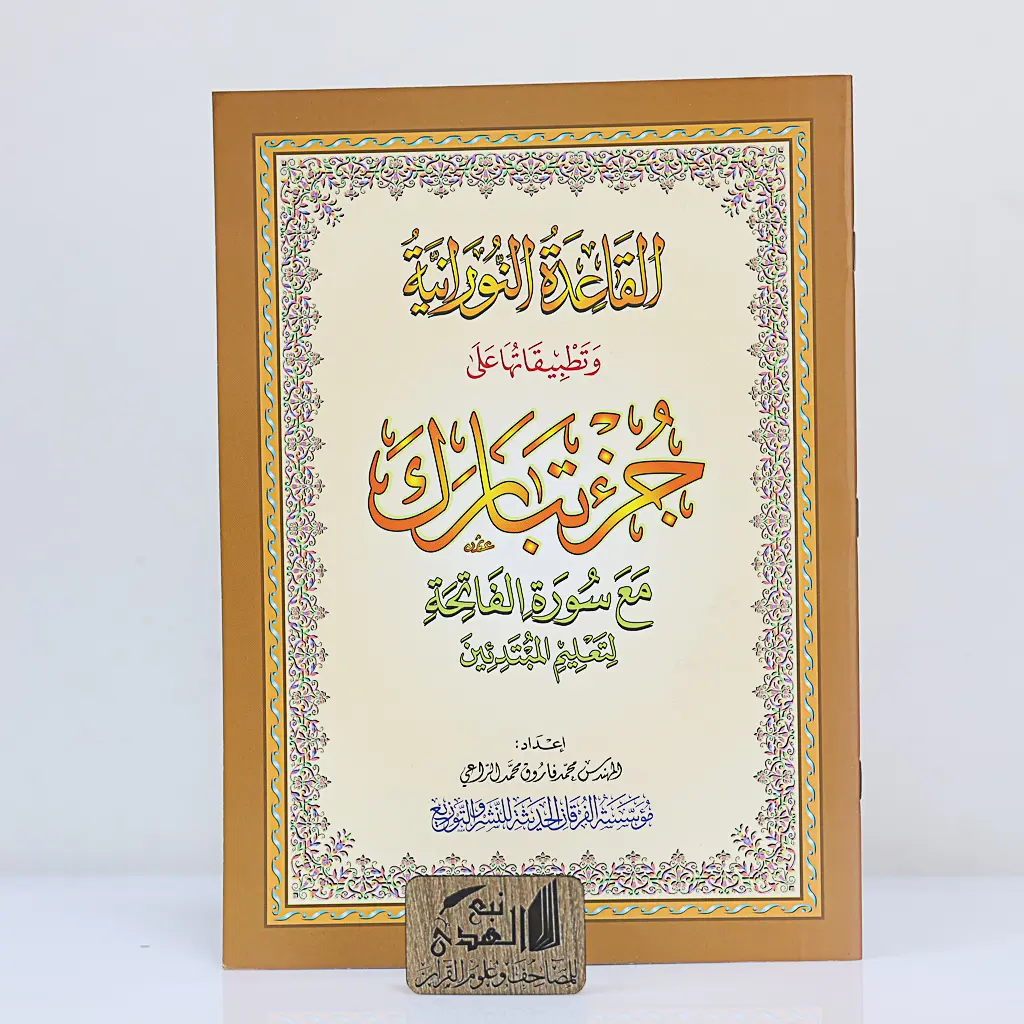 القَاعِدَةُ النُّورَانِيَّةُ
وَتَطْبِيقَاتُهَا عَلَى
جُزْءُ تَبَارَكَ
مَعَ سُورَةِ الفَاتِحَةِ
لِتَعْلِيمِ المُبْتَدِئِينَ
إعْدَاد:
المهندس محمد فاروق محمد الراعي
مُؤَسَّسَةُ الفُرْقَانِ الحَدِيثَة لِلنَّشْرِ وَالتَّوْزِيعِ
نبع
الهدى
للمصاحف وعلوم القرآن